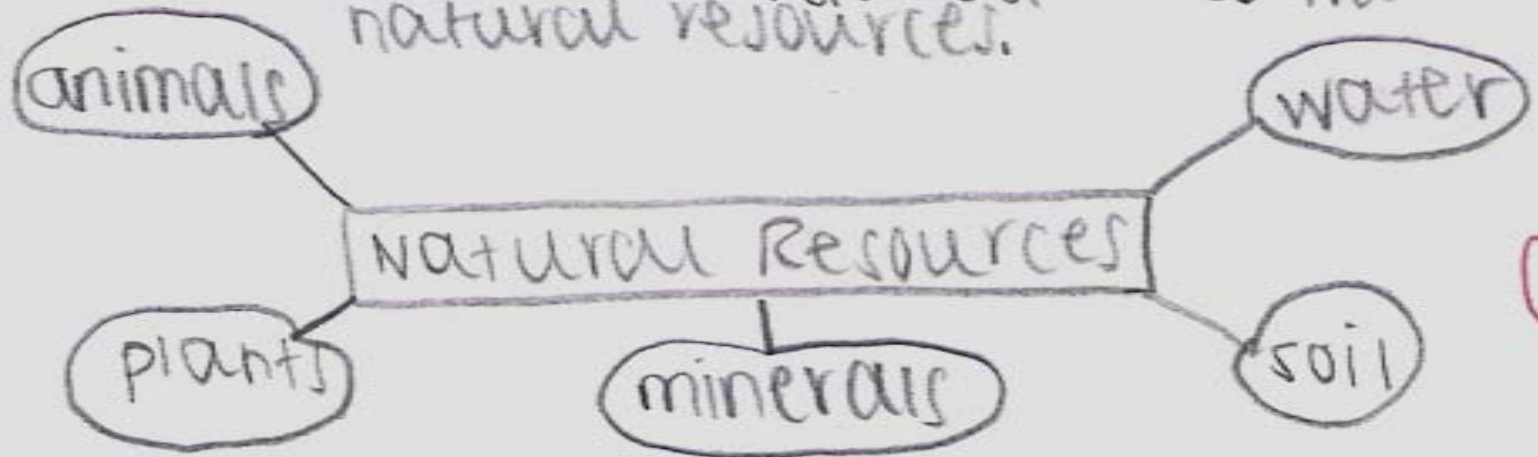 natural resources.
animals
water
Natural Resources
plants
minerals
soil